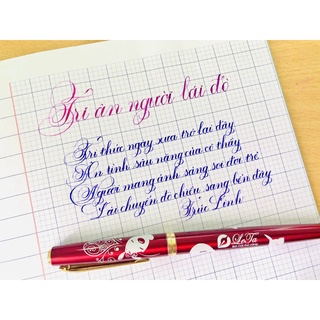 Tri ân người lái đò
Tri thức ngày xưa trở lại đây
Ân tình sâu nặng của cô thầy
Người mang ánh sáng soi đời trẻ
Lái chuyến đò chiều sang bến đây
Trúc Linh
LeTa